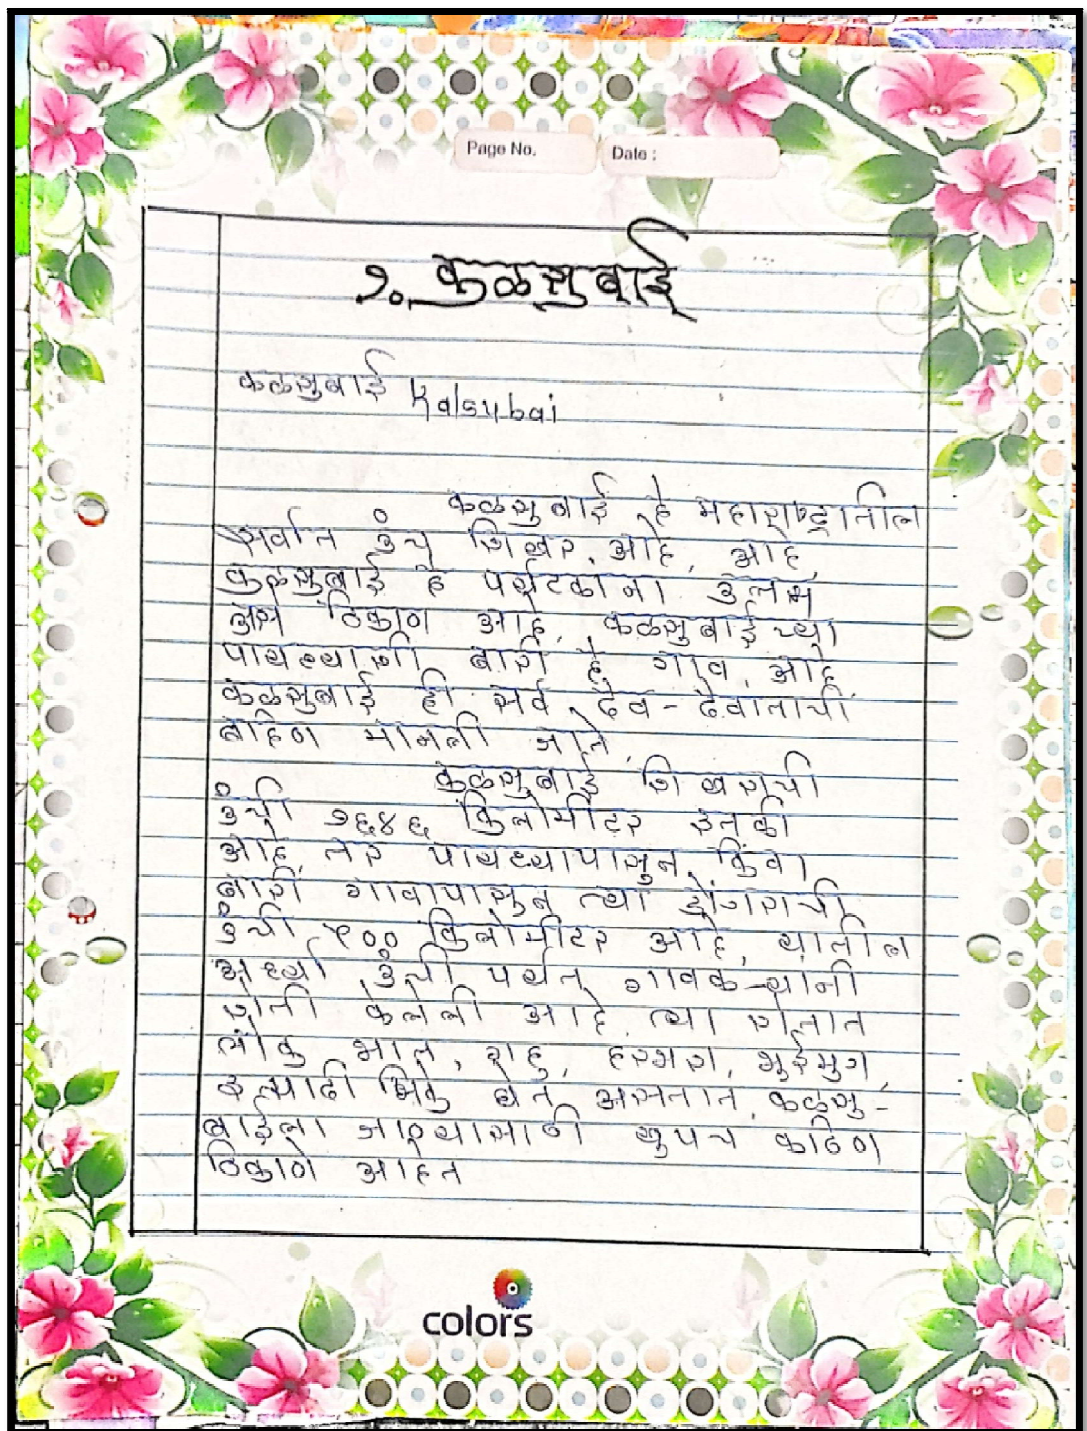 Page No.
Date :
१. कळसुबाई
कळसुबाई Kalsubai
कळसुबाई हे महाराष्ट्रातील
सर्वात उंच शिखर आहे, आहे,
कळसुबाई हे पर्यटकांना उत्तम
असे ठिकाण आहे, कळसुबाईच्या
पायथ्याशी बारी हे गाव आहे
कळसुबाई ही सर्व देव - देवातांची
बहिण मानली जाते
कळसुबाई शिखराची
उंची १६४६ किलोमीटर इतकी
आहे, तर पायथ्यापासुन किंवा
बारी गावापासुन त्या डोंगराची
उंची ९०० किलोमीटर आहे, यातील
अर्ध्या उंची पर्यत गावकऱ्यांनी
शेती केलेली आहे त्या शेतात
लोक भात, राहु, हरभरा, भुईमुग,
इत्यादी पिके घेत असतात, कळसु -
बाईला जाण्यासाठी खुपच कठिण
ठिकाणे आहेत
colors